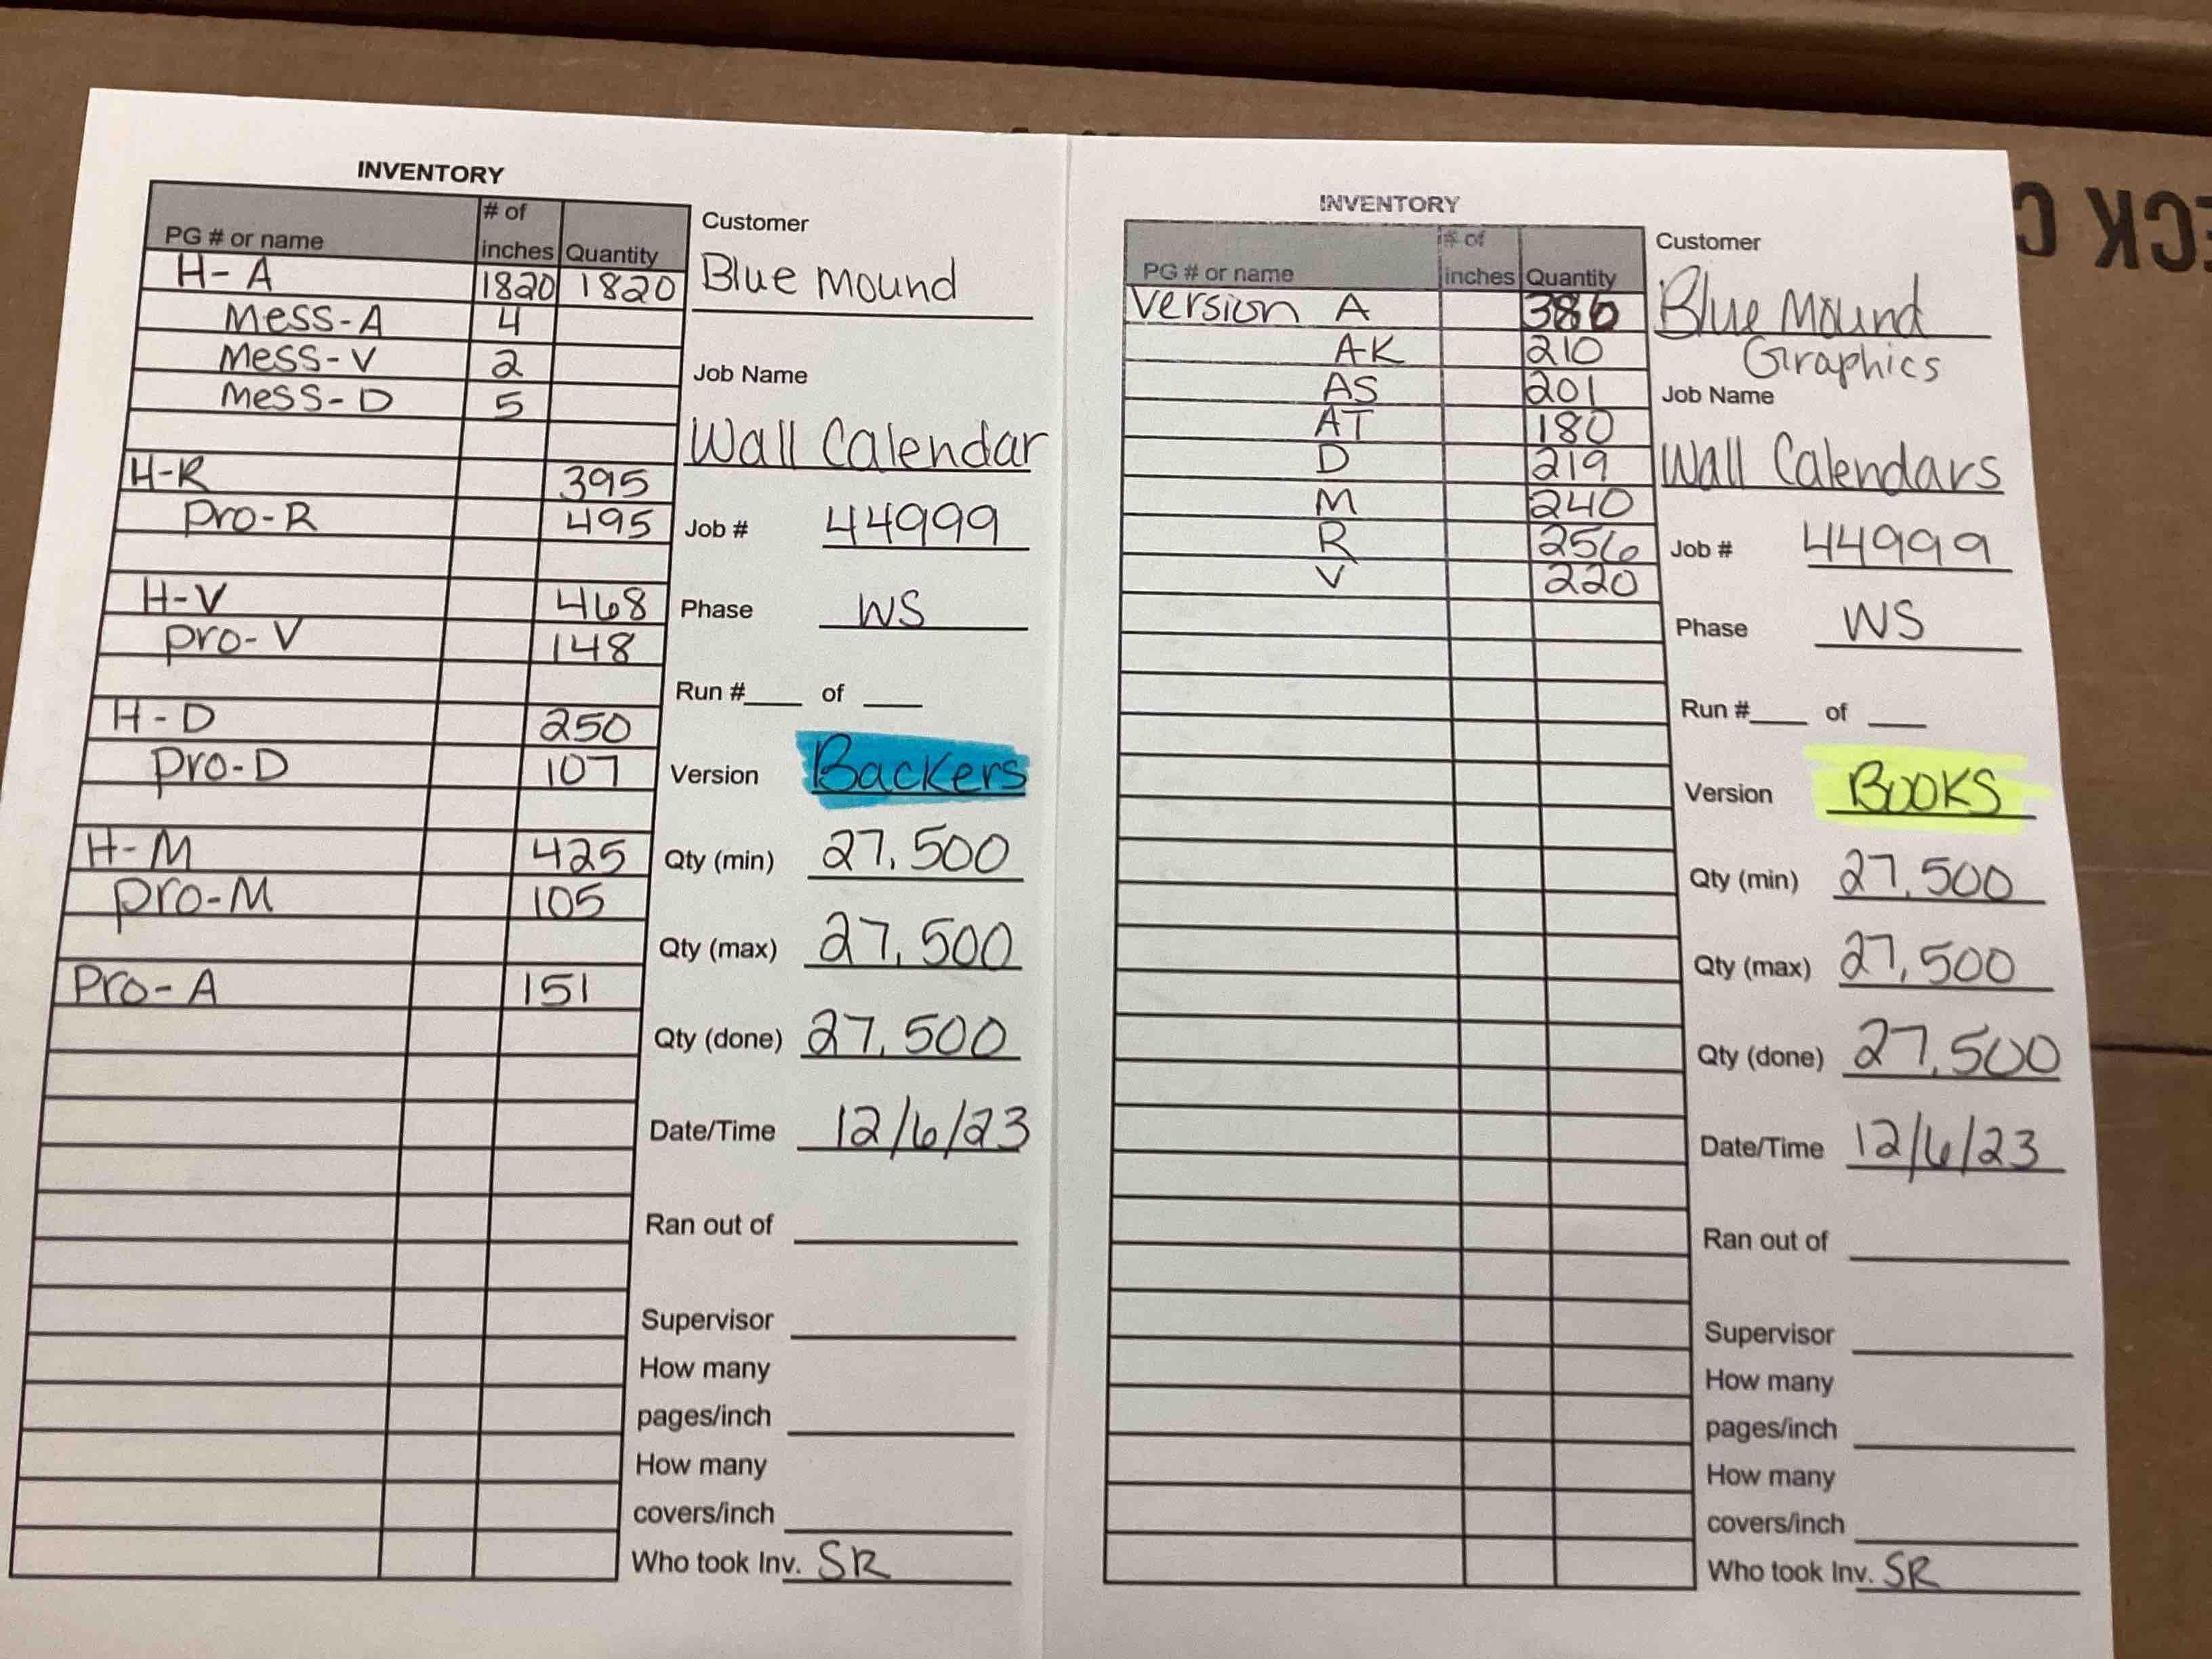 INVENTORY
PG # or name # of inches Quantity
H-A 1820 1820
Mess-A 4
Mess-V 2
Mess-D 5
H-R 395
Pro-R 495
H-V 468
Pro-V 148
H-D 250
Pro-D 107
H-M 425
Pro-M 105
Pro-A 151
Customer
Blue Mound
Job Name
Wall Calendar
Job # 44999
Phase WS
Run #____ of ____
Version Backers
Qty (min) 27,500
Qty (max) 27,500
Qty (done) 27,500
Date/Time 12/6/23
Ran out of
Supervisor
How many
pages/inch
How many
covers/inch
Who took Inv. SR
INVENTORY
PG # or name # of inches Quantity
Version A 386
AK 210
AS 201
AT 180
D 219
M 240
R 256
V 220
Customer
Blue Mound
Graphics
Job Name
Wall Calendars
Job # 44999
Phase WS
Run #____ of ____
Version BOOKS
Qty (min) 27,500
Qty (max) 27,500
Qty (done) 27,500
Date/Time 12/6/23
Ran out of
Supervisor
How many
pages/inch
How many
covers/inch
Who took Inv. SR